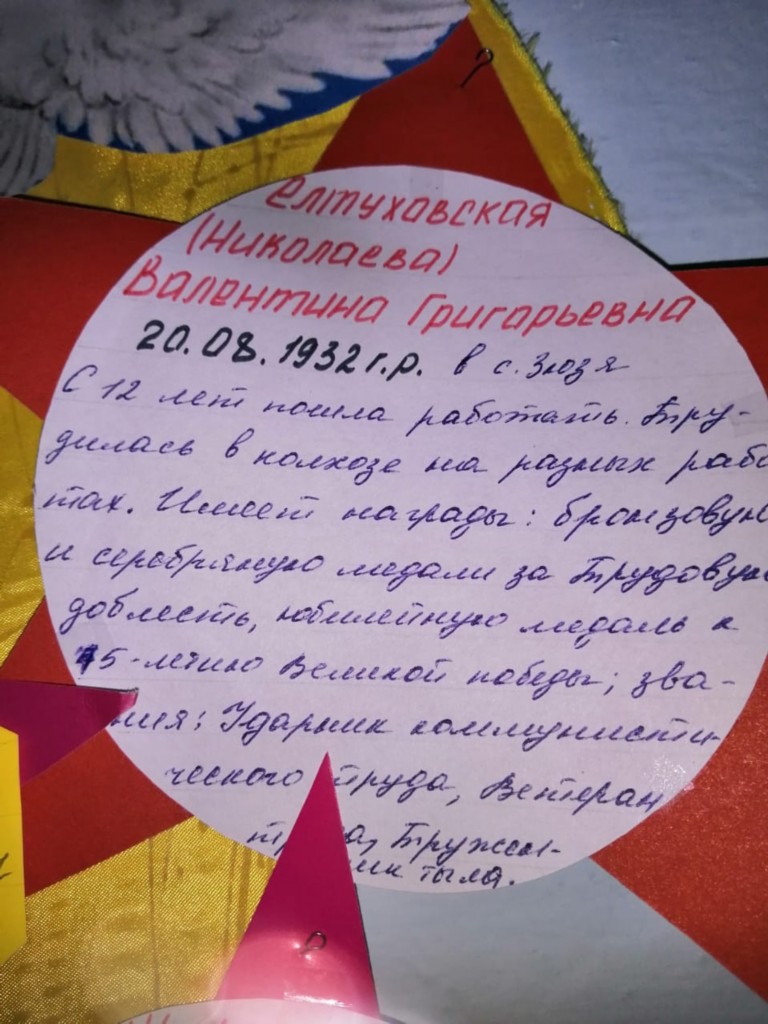 Елтуховская
(Николаева)
Валентина Григорьевна
20.08.1932 г.р. в с. Зюзя
С 12 лет пошла работать. Тру-
дилась в колхозе на разных рабо
тах. Имеет награды: бронзовую
и серебряную медали за Трудовую
доблесть, юбилейную медаль к
45-летию Великой победы; зва-
ния: Ударник коммунисти-
ческого труда, Ветеран
труда, Тружен-
ик тыла.